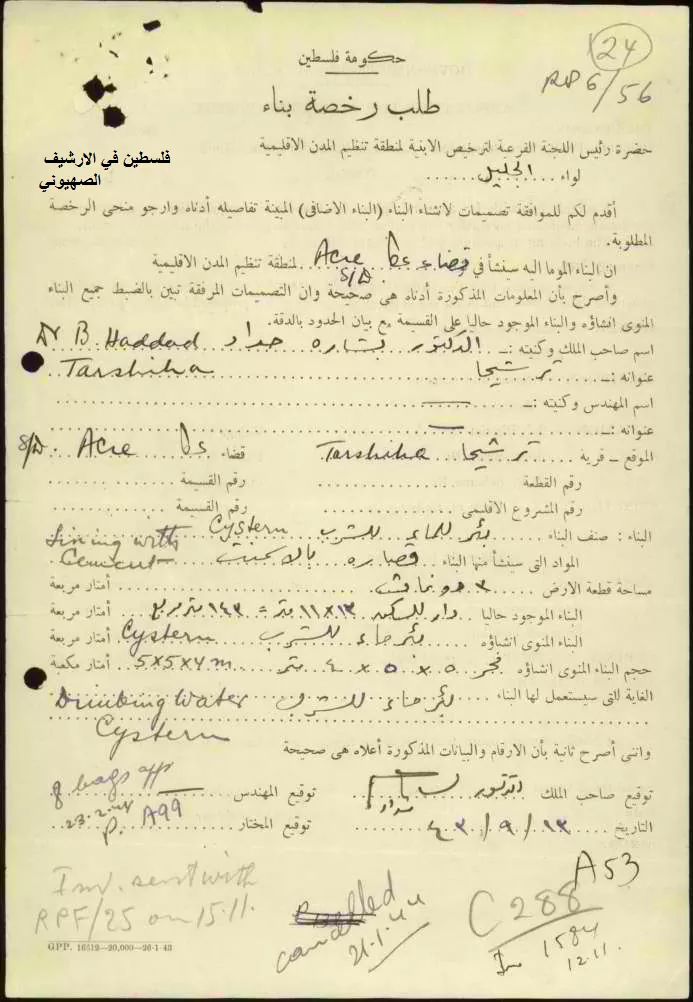 24
RP6/56
حكومة فلسطين
طلب رخصة بناء
فلسطين في الارشيف
الصهيوني
حضرة رئيس اللجنة الفرعية لترخيص الابنية لمنطقة تنظيم المدن الاقليمية
لواء ... الجليل ...
أقدم لكم للموافقة تصميمات لانشاء البناء (البناء الاضافى) المبينة تفاصيله أدناه وارجو منحى الرخصة
المطلوبة.
ان البناء الموما اليه سينشأ في قضاء عكا Acre S/D. لمنطقة تنظيم المدن الاقليمية
وأصرح بأن المعلومات المذكورة أدناه هى صحيحة وان التصميمات المرفقة تبين بالضبط جميع البناء
المنوى انشاؤه والبناء الموجود حاليا على القسيمة مع بيان الحدود بالدقة.
اسم صاحب الملك وكنيته :ـ الدكتور بشاره حداد Dr B Haddad
عنوانه :ـ ترشيحا Tarshiha
اسم المهندس وكنيته :ـ
عنوانه :ـ
الموقع ـ قرية ترشيحا Tarshiha قضاء عكا Acre S/D.
رقم القطعة ... رقم القسيمة ...
رقم المشروع الاقليمى ... رقم القسيمة ...
البناء : صنف البناء بئر للماء للشرب Cystern
المواد التى سينشأ منها البناء قصاره بالاسمنت Lining with Cement
مساحة قطعة الارض ٣ دونمات أمتار مربعة
البناء الموجود حاليا دار للسكن ١٣ × ١١ متر = ١٤٣ متر مربع أمتار مربعة
البناء المنوى انشاؤه بئر ماء للشرب Cystern أمتار مربعة
حجم البناء المنوى انشاؤه ٥ × ٥ × ٤ متر 5x5x4m أمتار مكعبة
الغاية للتى سيستعمل لها البناء بئر ماء للشرب Drinking Water
Cystern
واننى أصرح ثانية بأن الارقام والبيانات المذكورة أعلاه هى صحيحة
توقيع صاحب الملك دكتور ... توقيع المهندس
8 bags app
التاريخ ١٣/٩/٤٣ توقيع المختار
23-2-44
P. A99
A53
Inv. sent with
RPF/25 on 15.11.
cancelled
21.1.44
C288
Inv 1584
12.11.
GPP. 16512—20,000—26-1-43